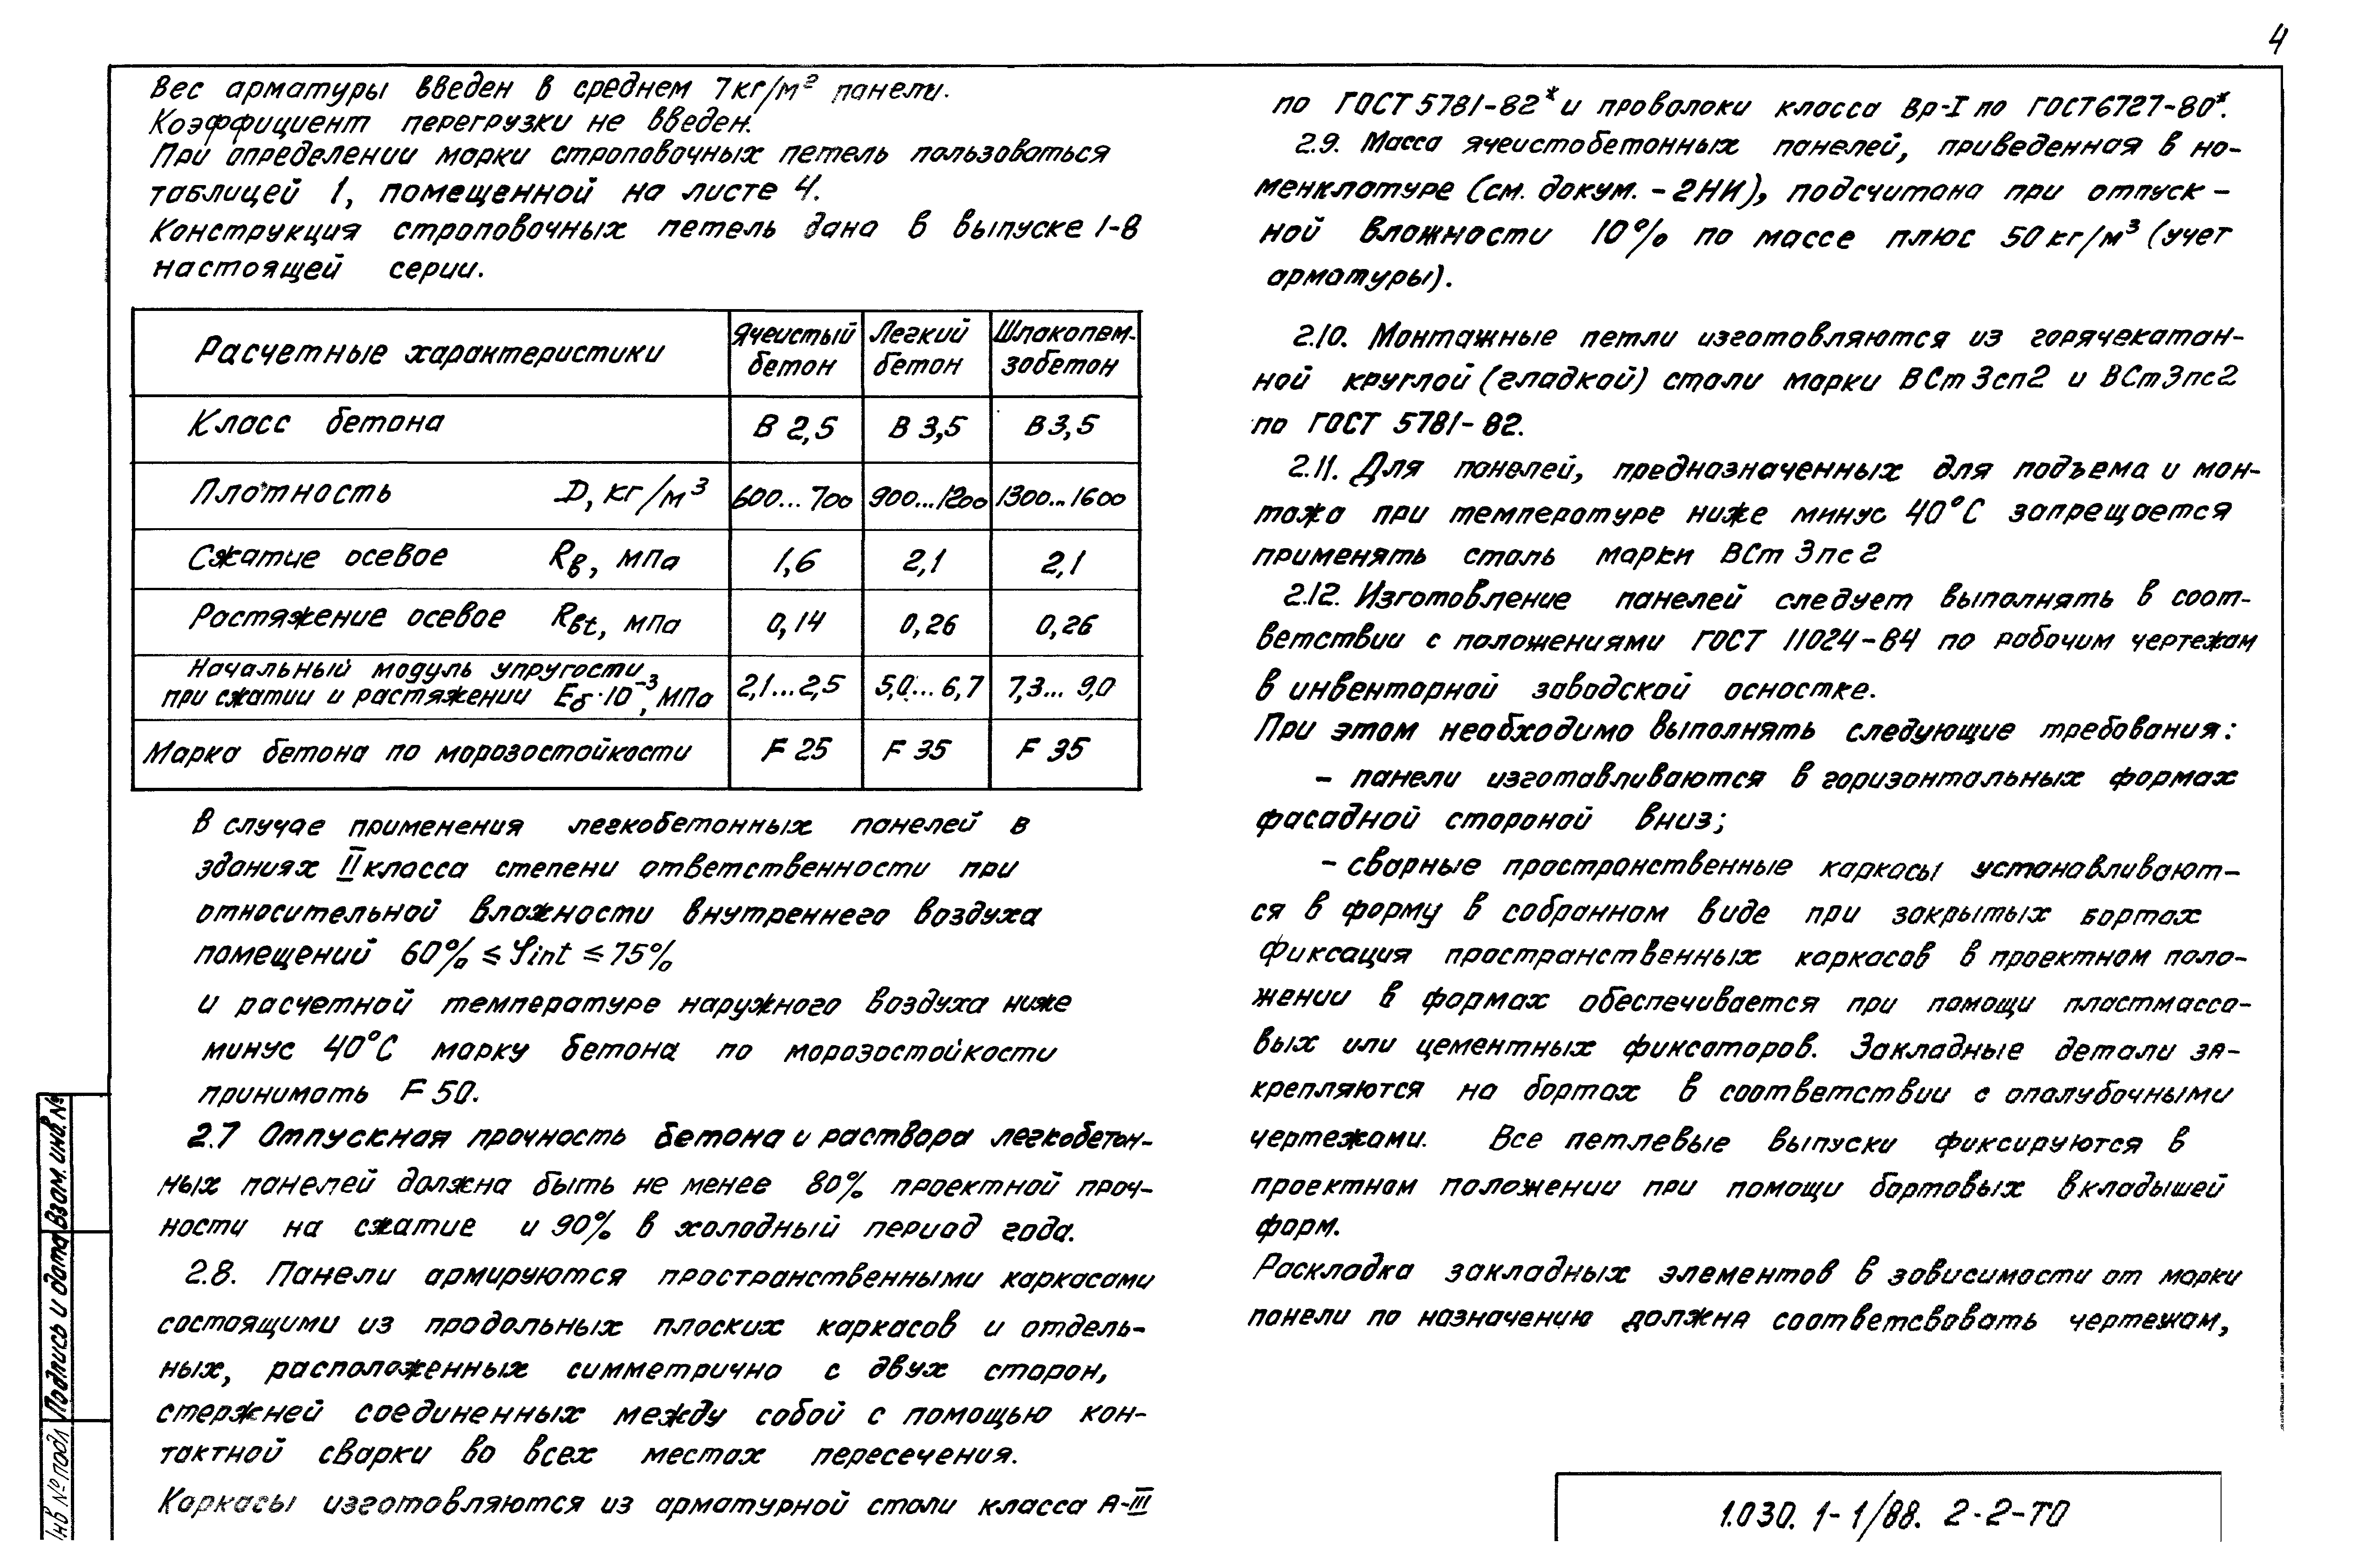 4
Вес арматуры введен в среднем 7кг/м² панели.
Коэффициент перегрузки не введен.
При определении марки строповочных петель пользоваться
таблицей 1, помещенной на листе 4.
Конструкция строповочных петель дана в выпуске 1-8
настоящей серии.
Расчетные характеристики | Ячеистый бетон | Легкий бетон | Шлакопем-зобетон
Класс бетона | В 2,5 | В 3,5 | В 3,5
Плотность D, кг/м³ | 600...700 | 900...1200 | 1300...1600
Сжатие осевое Rв, мПа | 1,6 | 2,1 | 2,1
Растяжение осевое Rвt, мПа | 0,14 | 0,26 | 0,26
Начальный модуль упругости
при сжатии и растяжении Eб·10⁻³, МПа | 2,1...2,5 | 5,0...6,7 | 7,3...9,0
Марка бетона по морозостойкости | F 25 | F 35 | F 35
В случае применения легкобетонных панелей в
зданиях II класса степени ответственности при
относительной влажности внутреннего воздуха
помещений 60% ≤ φint ≤ 75%
и расчетной температуре наружного воздуха ниже
минус 40°С марку бетона по морозостойкости
принимать F 50.
2.7 Отпускная прочность бетона и раствора легкобетон-
ных панелей должна быть не менее 80% проектной проч-
ности на сжатие и 90% в холодный период года.
2.8. Панели армируются пространственными каркасами
состоящими из продольных плоских каркасов и отдель-
ных, расположенных симметрично с двух сторон,
стержней соединенных между собой с помощью кон-
тактной сварки во всех местах пересечения.
Каркасы изготовляются из арматурной стали класса А-III
по ГОСТ 5781-82* и проволоки класса Вр-I по ГОСТ 6727-80*.
2.9. Масса ячеистобетонных панелей, приведенная в но-
менклатуре (см. докум. - 2НИ), подсчитана при отпуск-
ной влажности 10% по массе плюс 50 кг/м³ (учет
арматуры).
2.10. Монтажные петли изготовляются из горячекатан-
ной круглой (гладкой) стали марки ВСт3сп2 и ВСт3пс2
по ГОСТ 5781-82.
2.11. Для панелей, предназначенных для подъема и мон-
тажа при температуре ниже минус 40°С запрещается
применять сталь марки ВСт 3пс2
2.12. Изготовление панелей следует выполнять в соот-
ветствии с положениями ГОСТ 11024-84 по рабочим чертежам
в инвентарной заводской оснастке.
При этом необходимо выполнять следующие требования:
- панели изготавливаются в горизонтальных формах
фасадной стороной вниз;
- сварные пространственные каркасы устанавливают-
ся в форму в собранном виде при закрытых бортах
фиксация пространственных каркасов в проектном поло-
жении в формах обеспечивается при помощи пластмассо-
вых или цементных фиксаторов. Закладные детали за-
крепляются на бортах в соответствии с опалубочными
чертежами. Все петлевые выпуски фиксируются в
проектном положении при помощи бортовых вкладышей
форм.
Раскладка закладных элементов в зависимости от марки
панели по назначению должна соответсвовать чертежам,
Взам. инв. №
Подпись и дата
Инв № подл
1.030. 1-1/88. 2-2-ТО